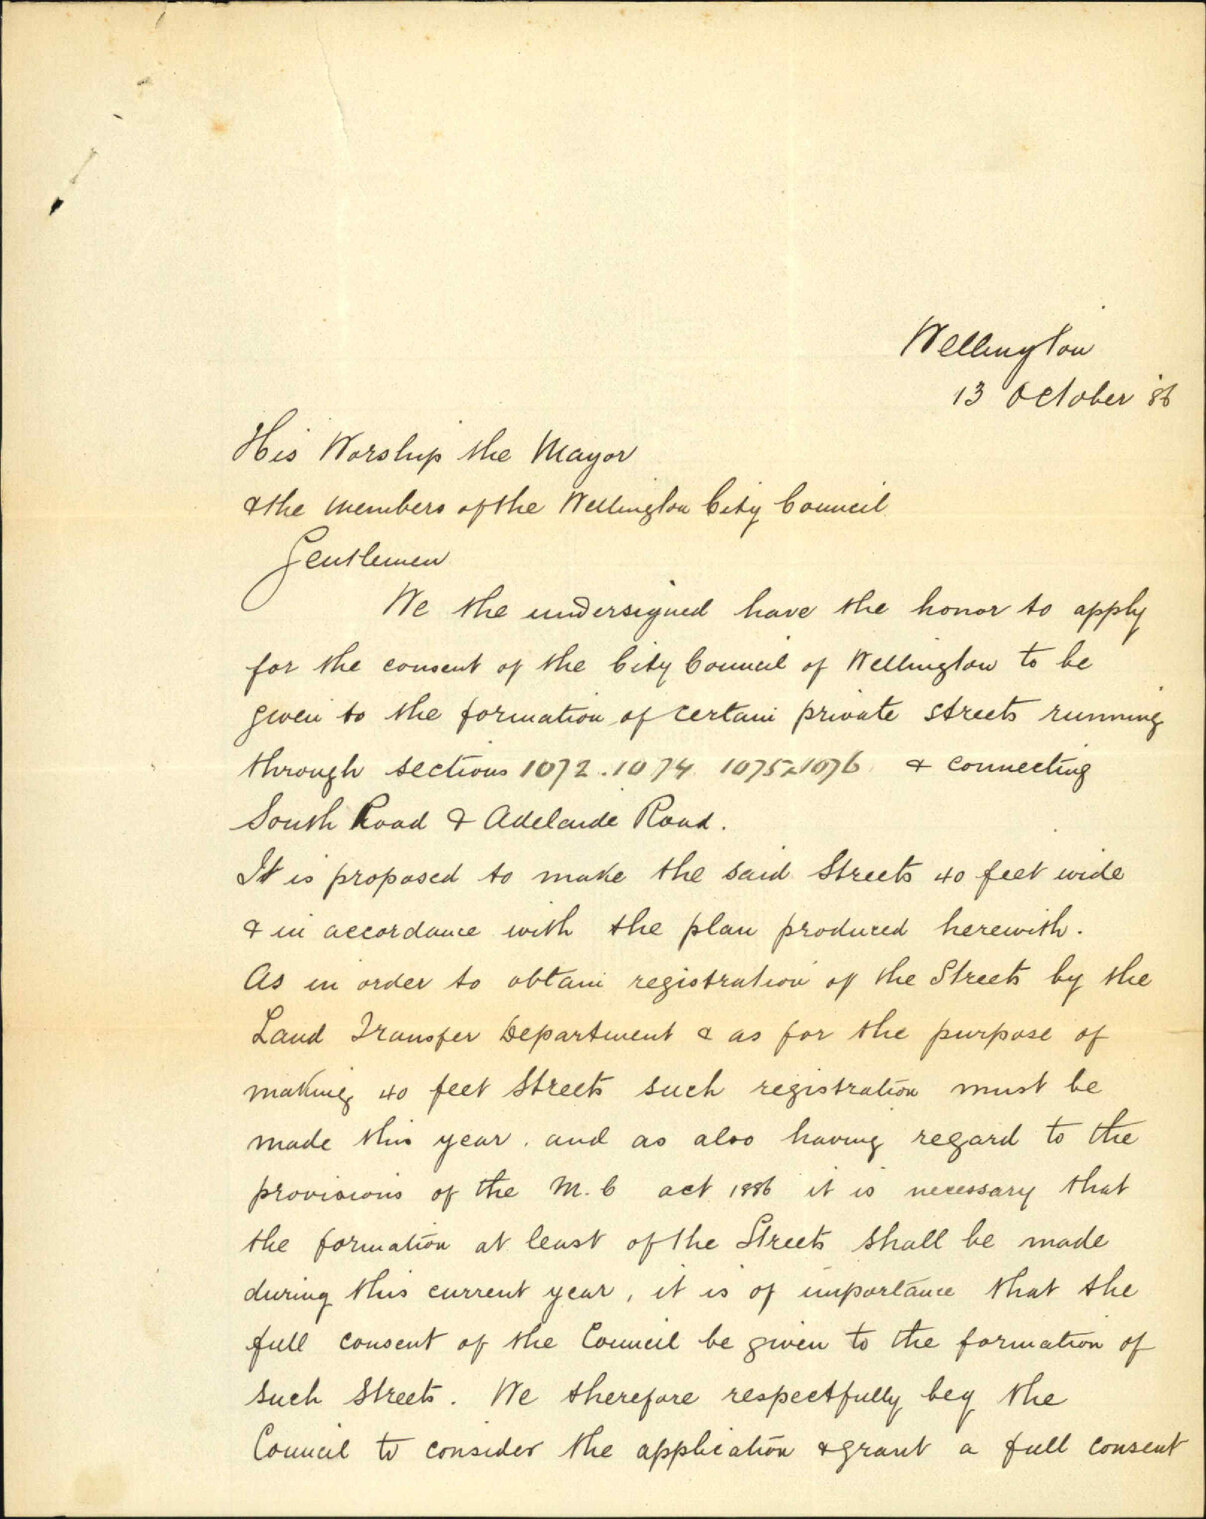 Wellington
13 October '86
His Worship the Mayor
& the members of the Wellington City Council
Gentlemen
We the undersigned have the honor to apply
for the consent of the City Council of Wellington to be
given to the formation of certain private streets running
through sections 1072. 1074 1075 & 1076 & connecting
South Road & Adelaide Road.
It is proposed to make the said Streets 40 feet wide
& in accordance with the plan produced herewith.
As in order to obtain registration of the Streets by the
Land Transfer Department & as for the purpose of
making 40 feet Streets such registration must be
made this year. and as also having regard to the
provisions of the M. C act 1886 it is necessary that
the formation at least of the Streets shall be made
during this current year, it is of importance that the
full consent of the Council be given to the formation of
such Streets. We therefore respectfully beg the
Council to consider the application & grant a full consent